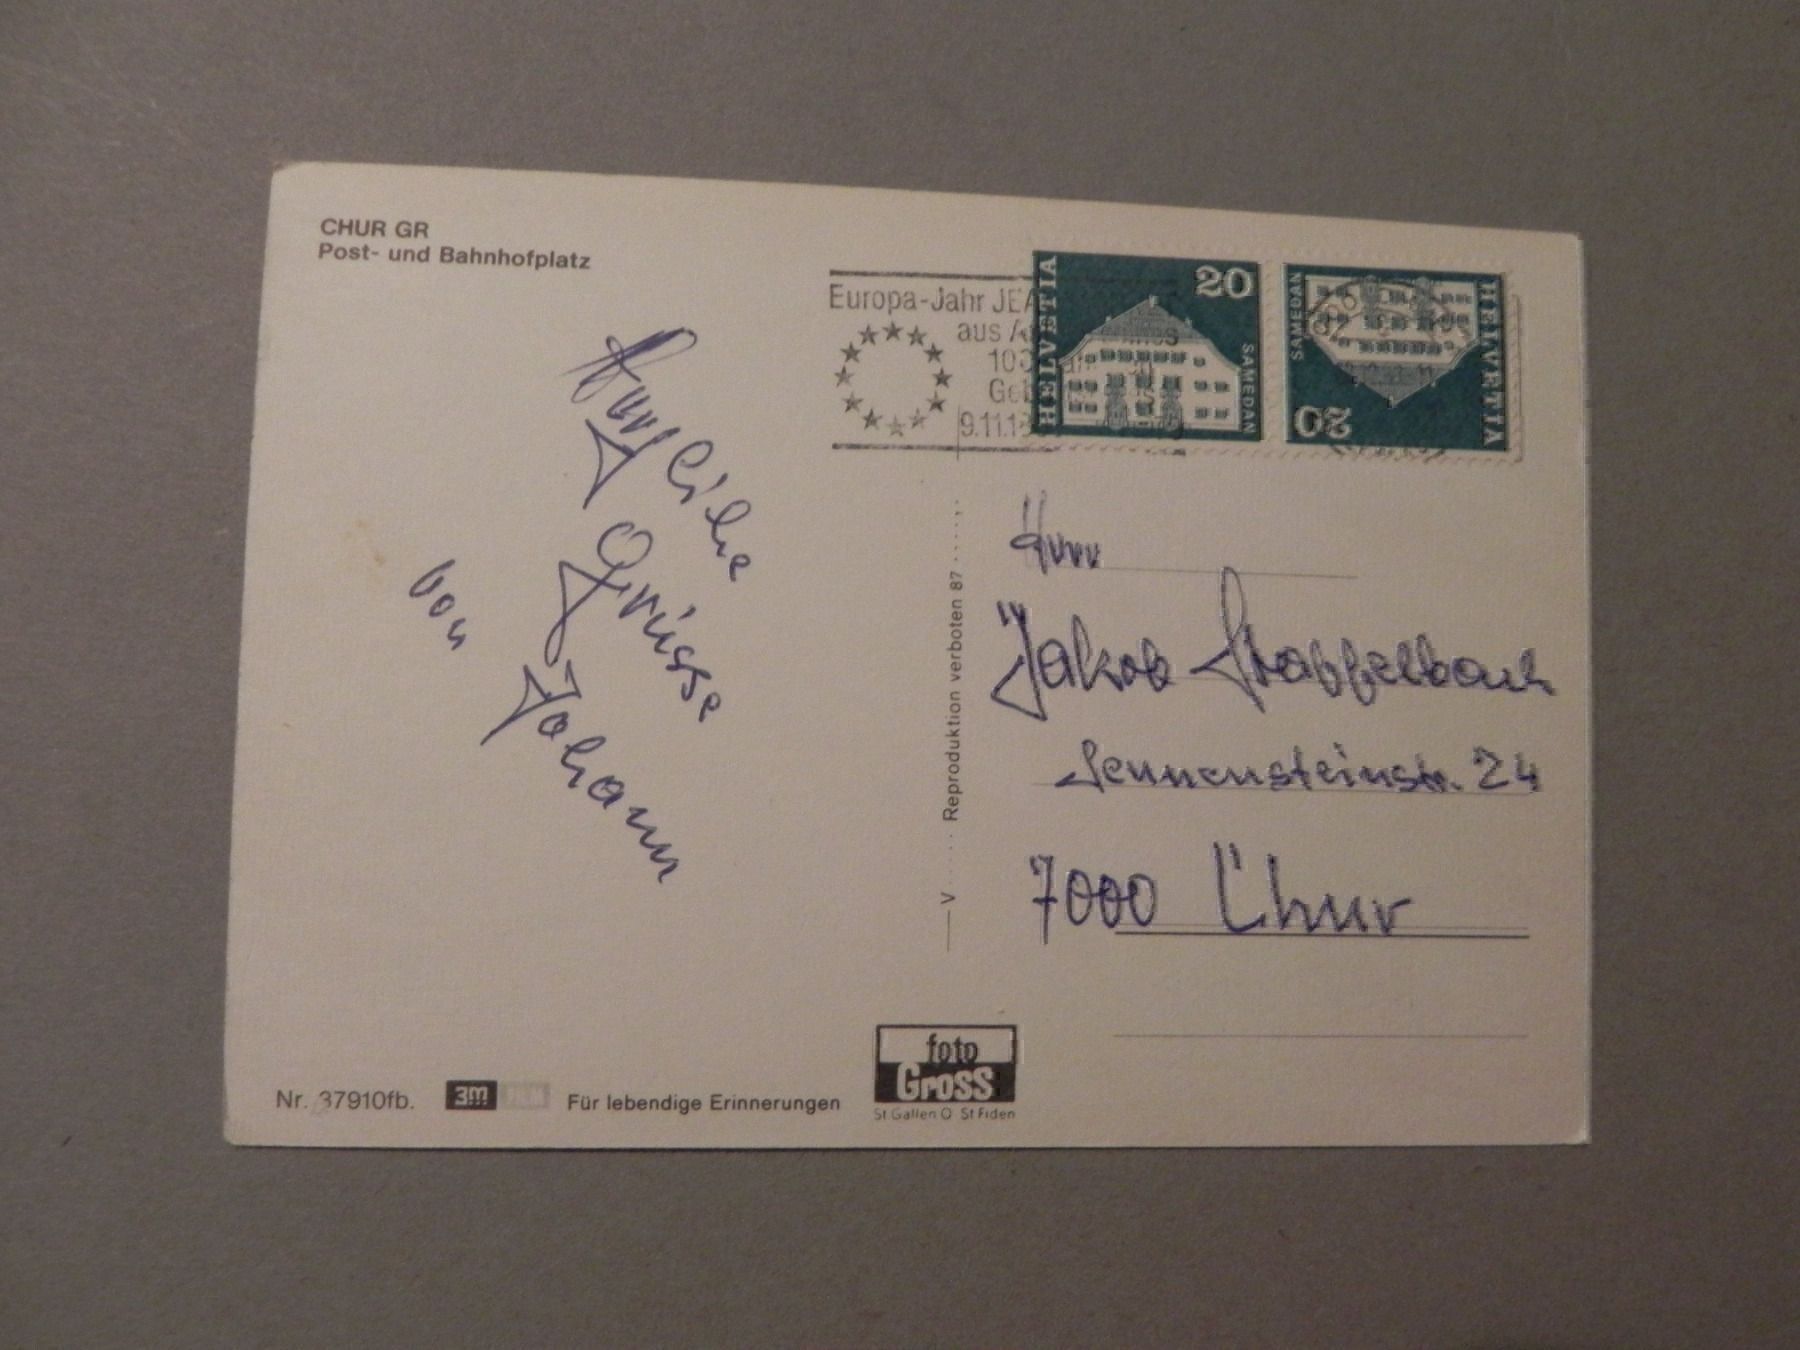 CHUR GR
Post- und Bahnhofplatz
Europa-Jahr JEA
aus A
Geb
9.11.1
HELVETIA
20
SAMEDAN
SAMEDAN
20
HELVETIA
Herzliche
Grüsse
von Johann
Herrn
Jakob Stapfelbach
Sennensteinstr. 24
7000 Chur
V Reproduktion verboten 87
Nr. 37910fb. 3M Für lebendige Erinnerungen
foto
Gross
St Gallen O St Fiden